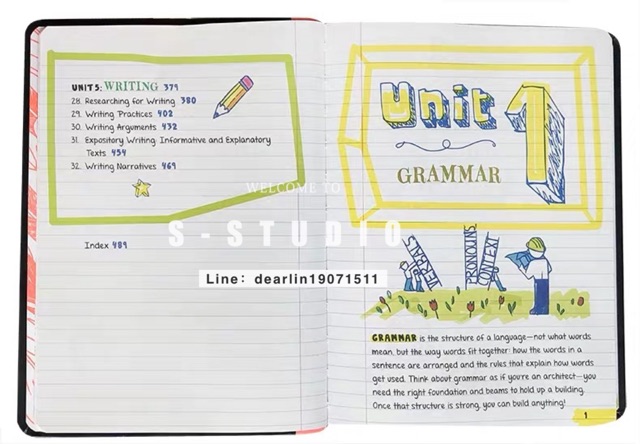 UNIT 5: WRITING 379
28. Researching for Writing 380
29. Writing Practices 402
30. Writing Arguments 432
31. Expository Writing: Informative and Explanatory
Texts 454
32. Writing Narratives 469
Index 489
Unit 1
GRAMMAR
WELCOME TO
S-STUDIO
Line: dearlin19071511
PRONOUNS
CONTEXT
GRAMMAR is the structure of a language—not what words
mean, but the way words fit together: how the words in a
sentence are arranged and the rules that explain how words
get used. Think about grammar as if you're an architect—you
need the right foundation and beams to hold up a building.
Once that structure is strong, you can build anything!
1